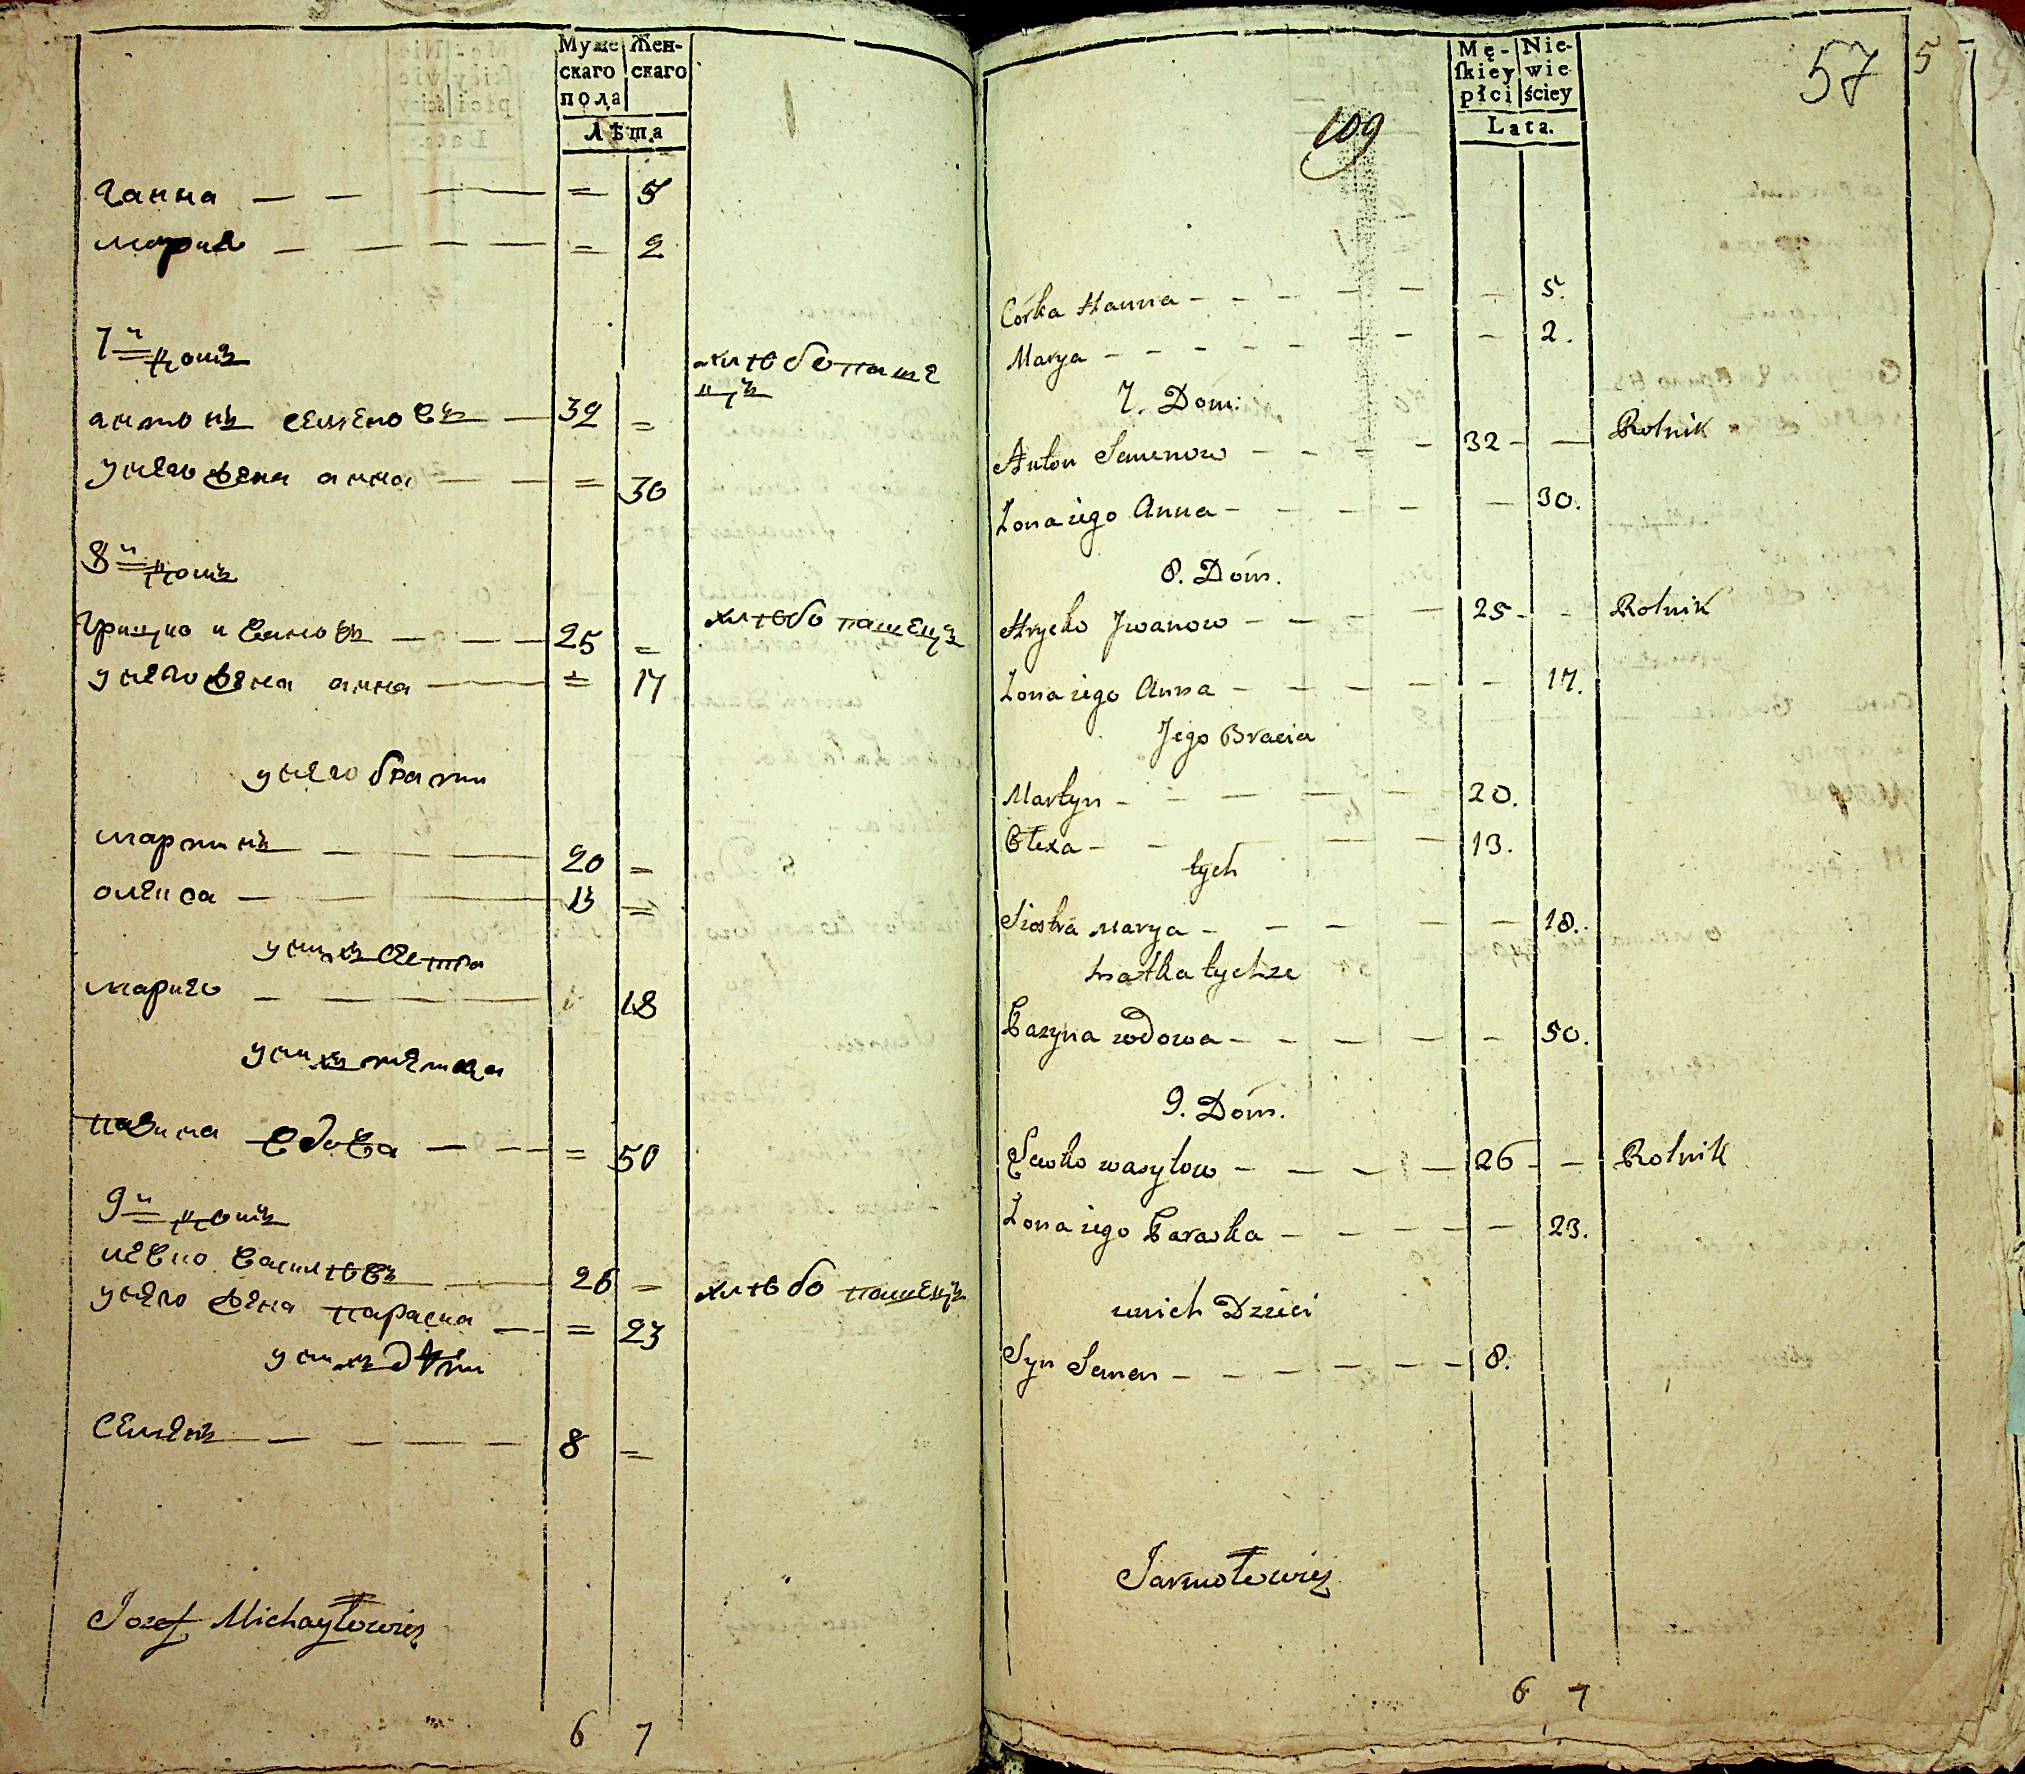 Муже Жен-
скаго скаго
пола
Лѣта
ганна — — — = 5
мария — — — — = 2
7й домъ
хлѣбопаше
цъ
антонъ семеновъ — 32 =
унего жена анна — — = 30
8й домъ
грицко ивановъ — — — 25 = хлѣбопашецъ
унего жена анна — = 17
унего брати
мартинъ — — — 20 =
олекса — — — 13 =
унихъ сестра
мария — — — — 18
унихъ матка
пазина вдова — — = 50
9й домъ
левко василѣвъ — 26 = хлѣбопашецъ
унего жена параска — = 23
унихъ дѣти
семенъ — — — — 8 =
Jozef Michayłowicz
6 7
57 5
Mę- Nie-
ſkiey wie
płci ściey
Lata.
109
Córka Hanna — — — — — — 5.
Marya — — — — — — — 2.
7. Dom:
Anton Semenow — — — — 32 — — Rolnik
Żona iego Anna — — — — — 30.
8. Dom.
Hrycko Jwanow — — — — 25 — — Rolnik
Żona iego Anna — — — — — 17.
Jego Bracia
Martyn — — — — — 20.
Olexa — — — — 13.
tych
Siostra Marya — — — — — 18.
Matka tychże
Pazyna wdowa — — — — — 50.
9. Dom.
Lewko wasylow — — — — 26 — — Rolnik
Żona iego Paraska — — — — 23.
unich Dzieci
Syn Semen — — — — — 8.
Jarmołowicz
6 7